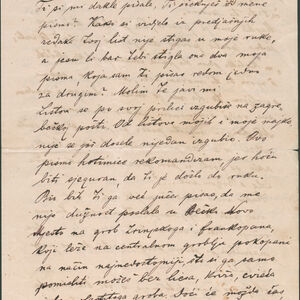 Ti pi mi dekle pisale, Ti očekuješ od mene
pismo? Kako si vidjela iz predjašnjih
redaka Tvoj list nije stigao u moje ruke,
a jesu li bar Tebi stigla ona dva moja
pisma koja sam Ti pisao redom jedno
za drugim? Molim Te javi mi.
Listovi se po svoj prilici izgubiše na zagre
bačkoj pošti. Od listova mojih i moje majke
nije se još dosele nijedan izgubio. Ovo
pismo hotimice rekomandiram, jer hoću
biti siguran, da Ti je došlo do ruku.
Bit će Ti ga već jučer pisao, da me
nije dužnost poslala u Bečko Novo
mjesto na grob Zrinjskoga i Frankopana,
koji leže na centralnom groblju pokopani
na način najnedostojniji, što si ga samo
pomisliti možeš bez lica, križa, cvieća
groba. Doći će možda čas